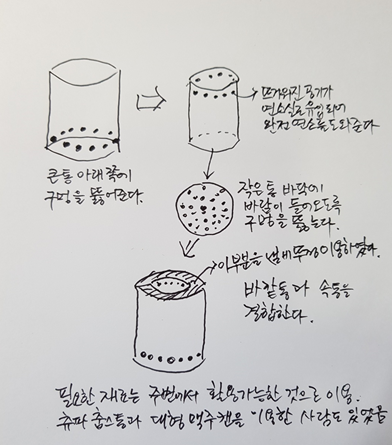 큰통 아래쪽에
구멍을 뚫어준다.
뜨거워진 공기가
연소실로 유입되어
완전연소를 도와준다
작은통 바닥에
바람이 들어오도록
구멍을 뚫는다.
이부분을 냄비뚜껑이용하였다.
바깥통과 속통을
결합한다.
필요한 재료는 주변에서 활용가능한 것으로 이용.
츄파춥스통과 대형 맥주캔을 이용한 사람도 있었음